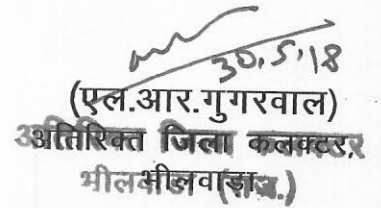 30.5.18
(एल.आर.गुगरवाल)
अतिरिक्त जिला कलक्टर,
भीलवाड़ा (राज.)